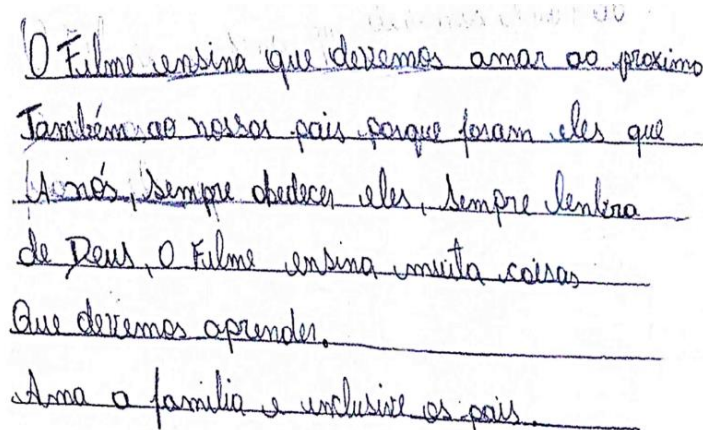 O Filme ensina que devemos amar ao proximo
Também ao nossos pais porque foram eles que
A nós, sempre obedecer eles, sempre lembra
de Deus, O Filme ensina muita coisas
Que devemos aprender.
Ama a familia e inclusive os pais.